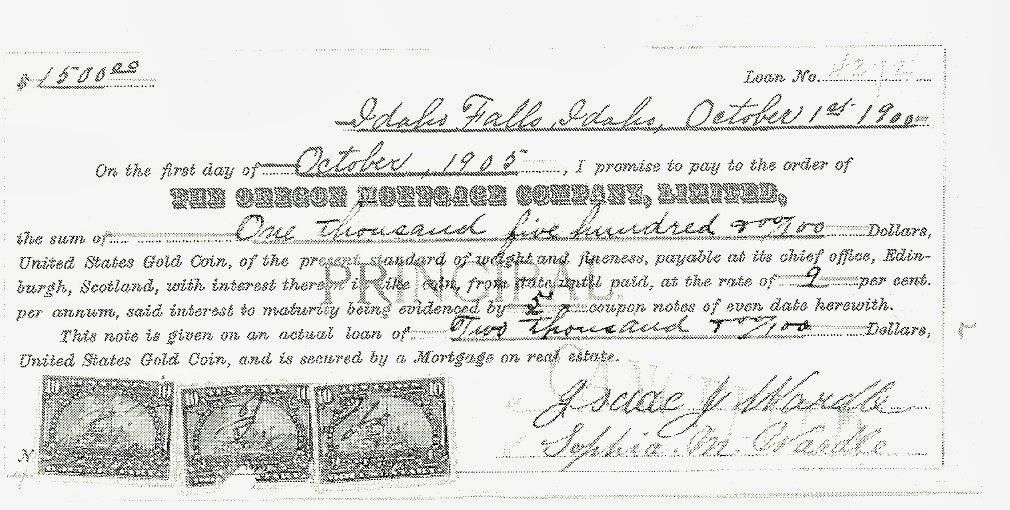 $1500.00
Loan No.
Idaho Falls, Idaho, October 1st 1900
On the first day of October, 1905, I promise to pay to the order of
THE OREGON MORTGAGE COMPANY, LIMITED,
the sum of One thousand five hundred no/100 Dollars,
United States Gold Coin, of the present standard of weight and fineness, payable at its chief office, Edin-
burgh, Scotland, with interest thereon in like coin, from date until paid, at the rate of 9 per cent.
per annum, said interest to maturity being evidenced by coupon notes of even date herewith.
PRINCIPAL
This note is given on an actual loan of Two thousand no/100 Dollars,
United States Gold Coin, and is secured by a Mortgage on real estate.
10 10 10 10 10
Isaac J Wardle
Sophia M. Wardle
N